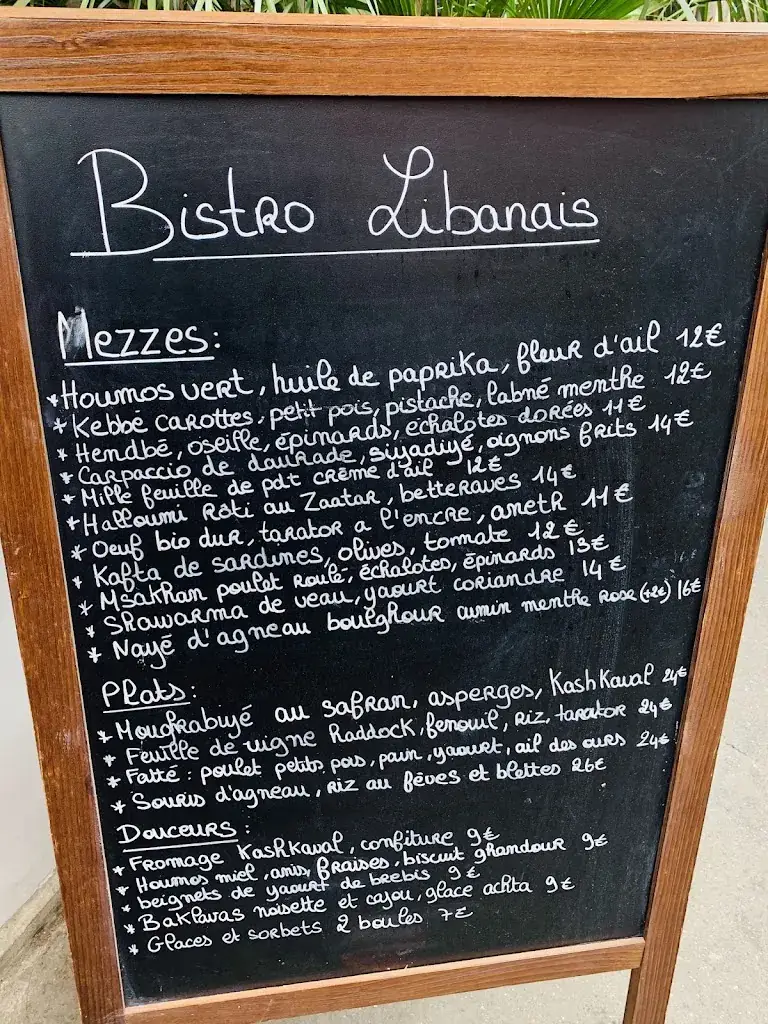 Bistro Libanais
Mezzes:
* Houmos vert, huile de paprika, fleur d'ail 12€
* Kebbé carottes, petit pois, pistache, labné menthe 12€
* Hendbé, oseille, épinards, échalotes dorées 11€
* Carpaccio de daurade, siyadiyé, oignons frits 14€
* Mille feuille de pdt crème d'ail 12€
* Halloumi rôti au Zaatar, betteraves 14€
* Oeuf bio dur, tarator a l'encre, aneth 11€
* Kafta de sardines, olives, tomate 12€
* Msakhan poulet roulé, échalotes, épinards 13€
* Shawarma de veau, yaourt coriandre 14€
* Nayé d'agneau boulghour cumin menthe rose (+2€) 16€
Plats:
* Moughrabiyé au safran, asperges, Kashkaval 24€
* Feuille de vigne haddock, fenouil, riz, tarator 24€
* Fatté: poulet petits pois, pain, yaourt, ail des ours 24€
* Souris d'agneau, riz au fèves et blettes 26€
Douceurs:
* Fromage Kashkaval, confiture 9€
* Houmos miel, anis, fraises, biscuit ghandour 9€
* beignets de yaourt de brebis 9€
* Baklavas noisette et cajou, glace achta 9€
* Glaces et sorbets 2 boules 7€